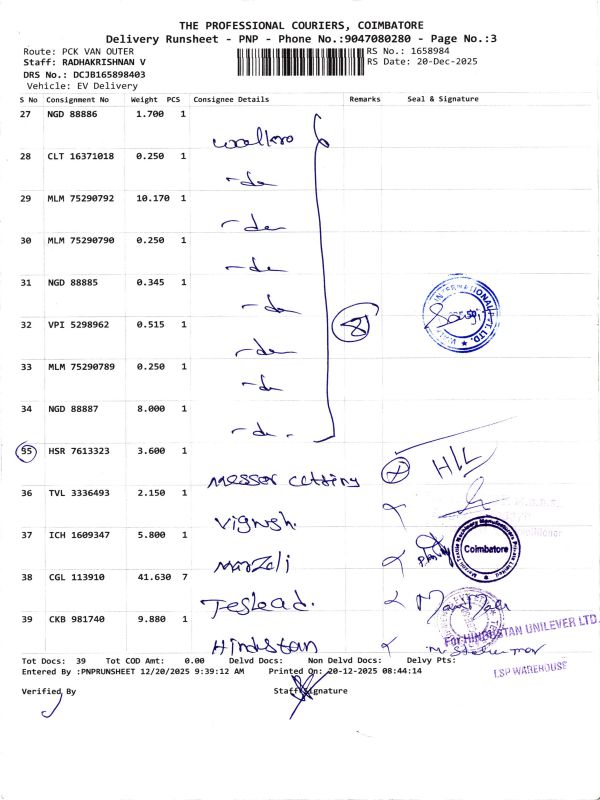 THE PROFESSIONAL COURIERS, COIMBATORE
Delivery Runsheet - PNP - Phone No.:9047080280 - Page No.:3
Route: PCK VAN OUTER
RS No.: 1658984
Staff: RADHAKRISHNAN V
RS Date: 20-Dec-2025
DRS No.: DCJB165898403
Vehicle: EV Delivery
S No Consignment No Weight PCS Consignee Details Remarks Seal & Signature
27 NGD 88886 1.700 1
28 CLT 16371018 0.250 1
-do
29 MLM 75290792 10.170 1
-do
30 MLM 75290790 0.250 1
-do
31 NGD 88885 0.345 1
-do
32 VPI 5298962 0.515 1
8
-do
33 MLM 75290789 0.250 1
-do
34 NGD 88887 8.000 1
-do.
35 HSR 7613323 3.600 1
HLL
Messer cutting
36 TVL 3336493 2.150 1
Vignesh.
37 ICH 1609347 5.800 1
Coimbatore
Marzoli
38 CGL 113910 41.630 7
Teslead.
39 CKB 981740 9.880 1
For HINDUSTAN UNILEVER LTD.
Hindustan
Tot Docs: 39 Tot COD Amt: 0.00 Delvd Docs: Non Delvd Docs: Delvy Pts:
LSP WAREHOUSE
Entered By :PNPRUNSHEET 12/20/2025 9:39:12 AM Printed On: 20-12-2025 08:44:14
Verified By
Staff Signature